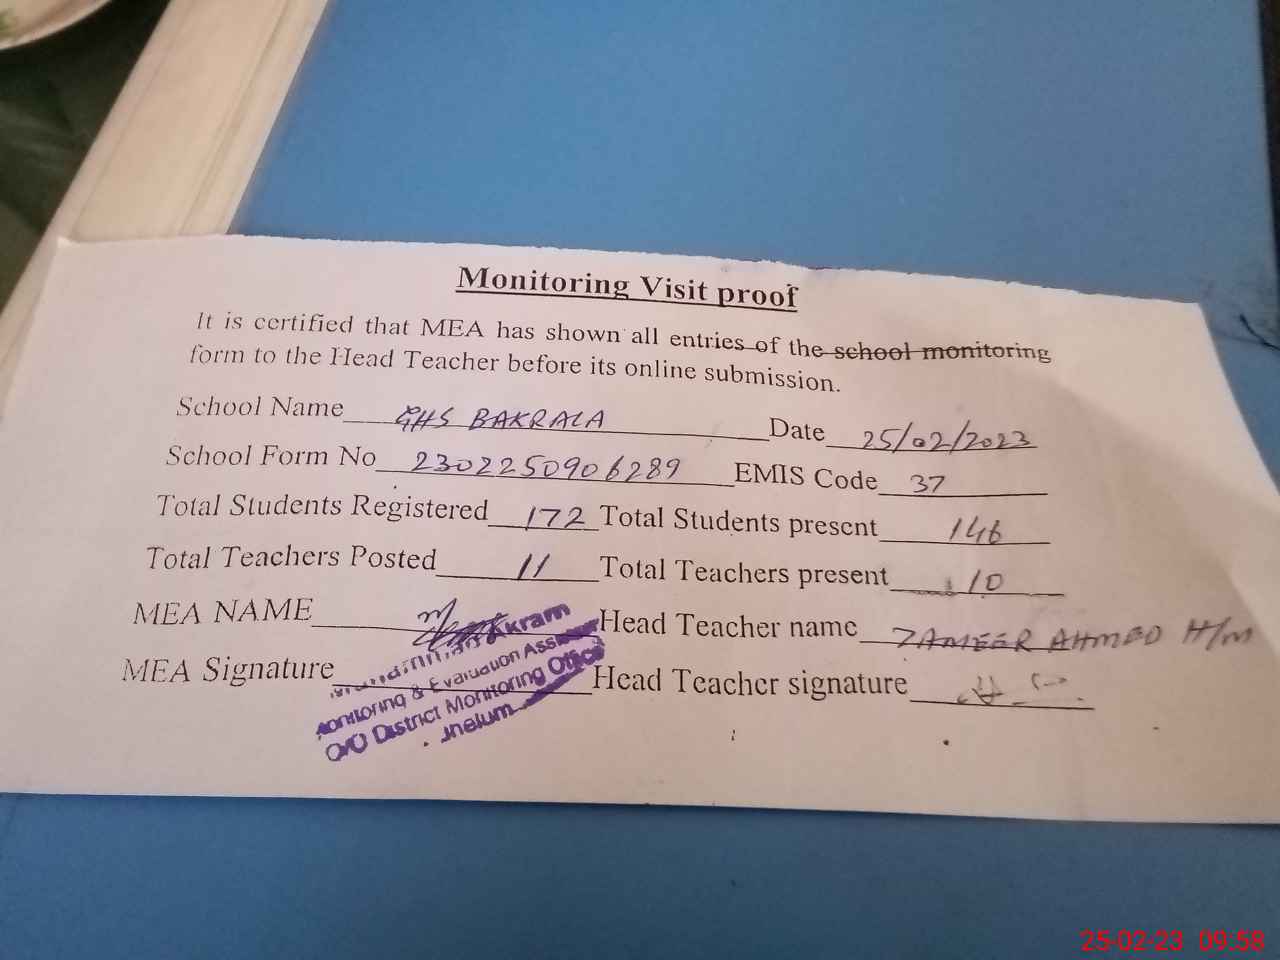 Monitoring Visit proof
It is certified that MEA has shown all entries of the school monitoring
form to the Head Teacher before its online submission.
School Name GHS BAKRALA Date 25/02/2023
School Form No 2302250906289 EMIS Code 37
Total Students Registered 172 Total Students present 146
Total Teachers Posted 11 Total Teachers present 10
MEA NAME Head Teacher name ZAMEER AHMED H/M
MEA Signature Head Teacher signature
Akram
Monitoring & Evaluation Assistant
O/O District Monitoring Office
Jhelum
25-02-23 09:58